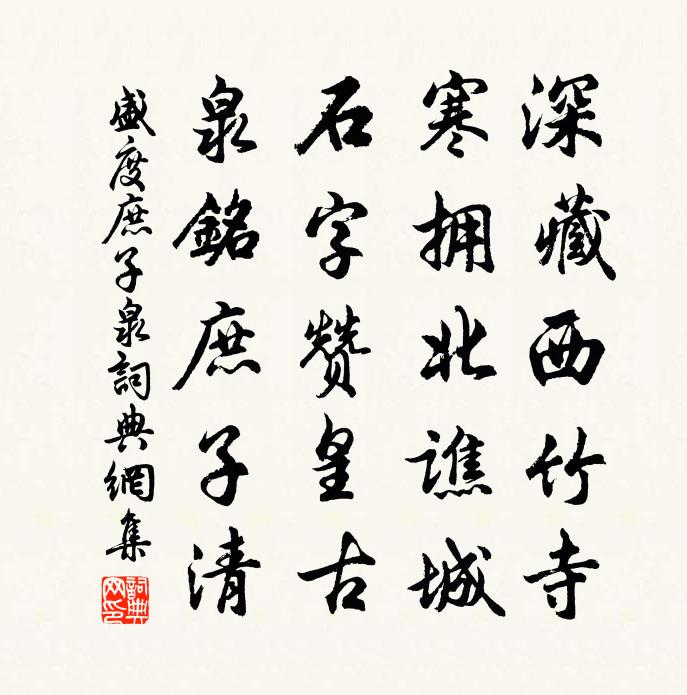 深藏西竹寺
寒拥北譙城
石字贊皇古
泉銘庶子清
盛度庶子泉詞典網集
詞典網印